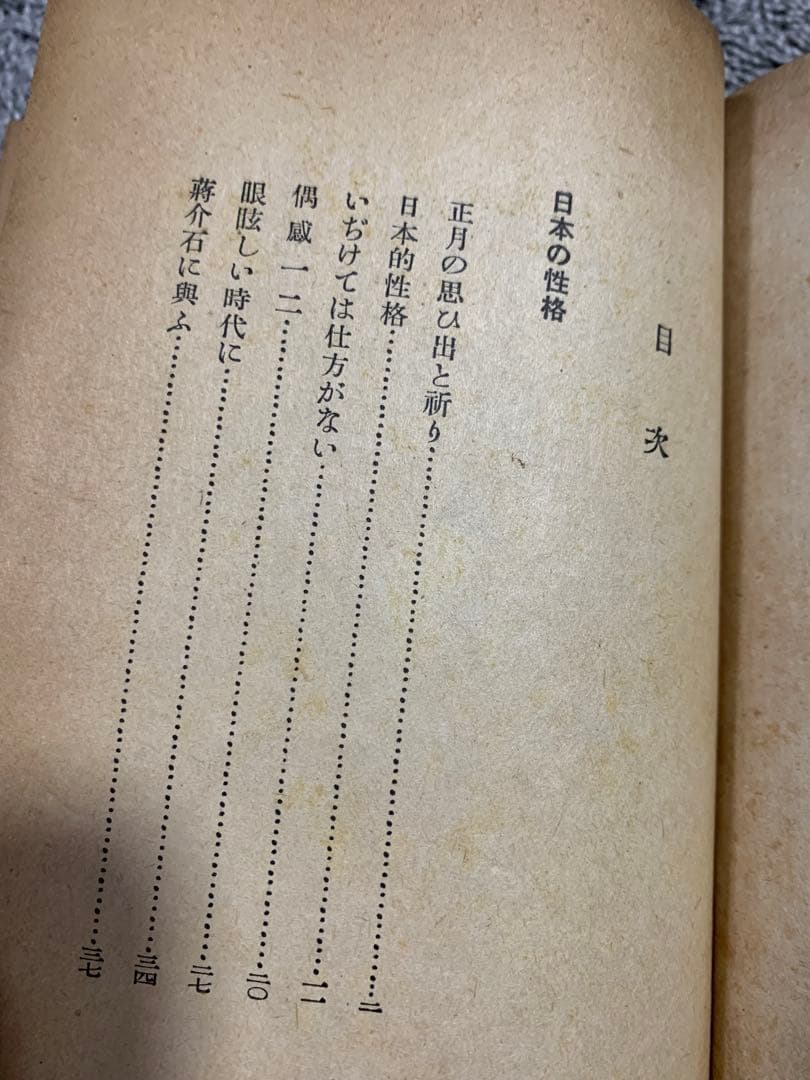 目次
日本の性格
正月の思ひ出と祈り……………………二
日本的性格……………………一一
いぢけては仕方がない……………………二〇
偶感一二……………………二七
眼眩しい時代に……………………三四
蔣介石に與ふ……………………三七